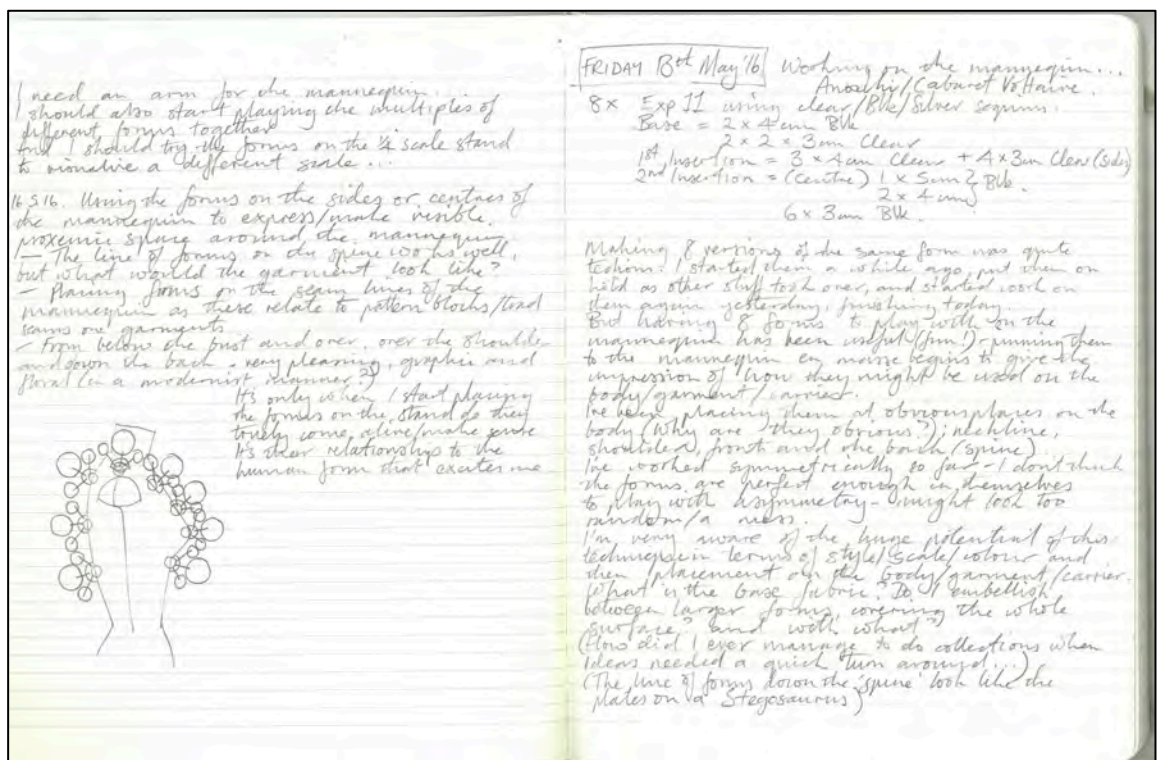 I need an arm for the mannequin....
I should also start playing the multiples of
different forms together
And I should try the forms on the ¼ scale stand
to visualise a different scale...
16.5.16. Using the forms on the sides or centres of
the mannequin to express/make visible
proxemic space around the mannequin
– The line of forms on the spine works well,
but what would the garment look like?
– Placing forms on the seam lines of the
mannequin as these relate to pattern blocks/trad
seams on garments
– From below the bust and over, over the shoulder
and down the back. very pleasing, graphic and
floral (in a modernist manner?)
It's only when I start placing
the forms on the stand do they
truely come alive/make sense
It's their relationship to the
human form that excites me
FRIDAY 13th May '16 Working on the mannequin...
Anouchy/Cabaret Voltaire.
8x Exp II using clear/Blk/Silver sequins.
Base = 2 x 4cm Blk
2 x 2 x 3cm Clear
1st Insertion = 3 x 4cm Clear + 4 x 3cm Clear (sides)
2nd Insertion = (Centre) 1 x 5cm } Blk.
2 x 4cm }
6 x 3cm Blk.
Making 8 versions of the same form was quite
tedious. I started them a while ago, put them on
hold as other stuff took over, and started work on
them again yesterday, finishing today.
But having 8 forms to play with on the
mannequin has been useful (fun!) - pinning them
to the mannequin en masse begins to give the
impression of how they might be used on the
body/garment/carrier.
I've been placing them at obvious places on the
body (Why are they obvious?); neckline,
shoulders, front and the back (spine).
I've worked symmetrically so far - I don't think
the forms are perfect enough in themselves
to play with asymmetry - might look too
random/a mess.
I'm very aware of the huge potential of this
technique in terms of style/scale/colour and
then placement on the body/garment/carrier.
What is the base fabric? Do I embellish
between larger forms, covering the whole
surface? and with what?
(How did I ever manage to do collections when
ideas needed a quick turn around...)
(The line of forms down the 'spine' look like the
plates on a Stegosaurus)